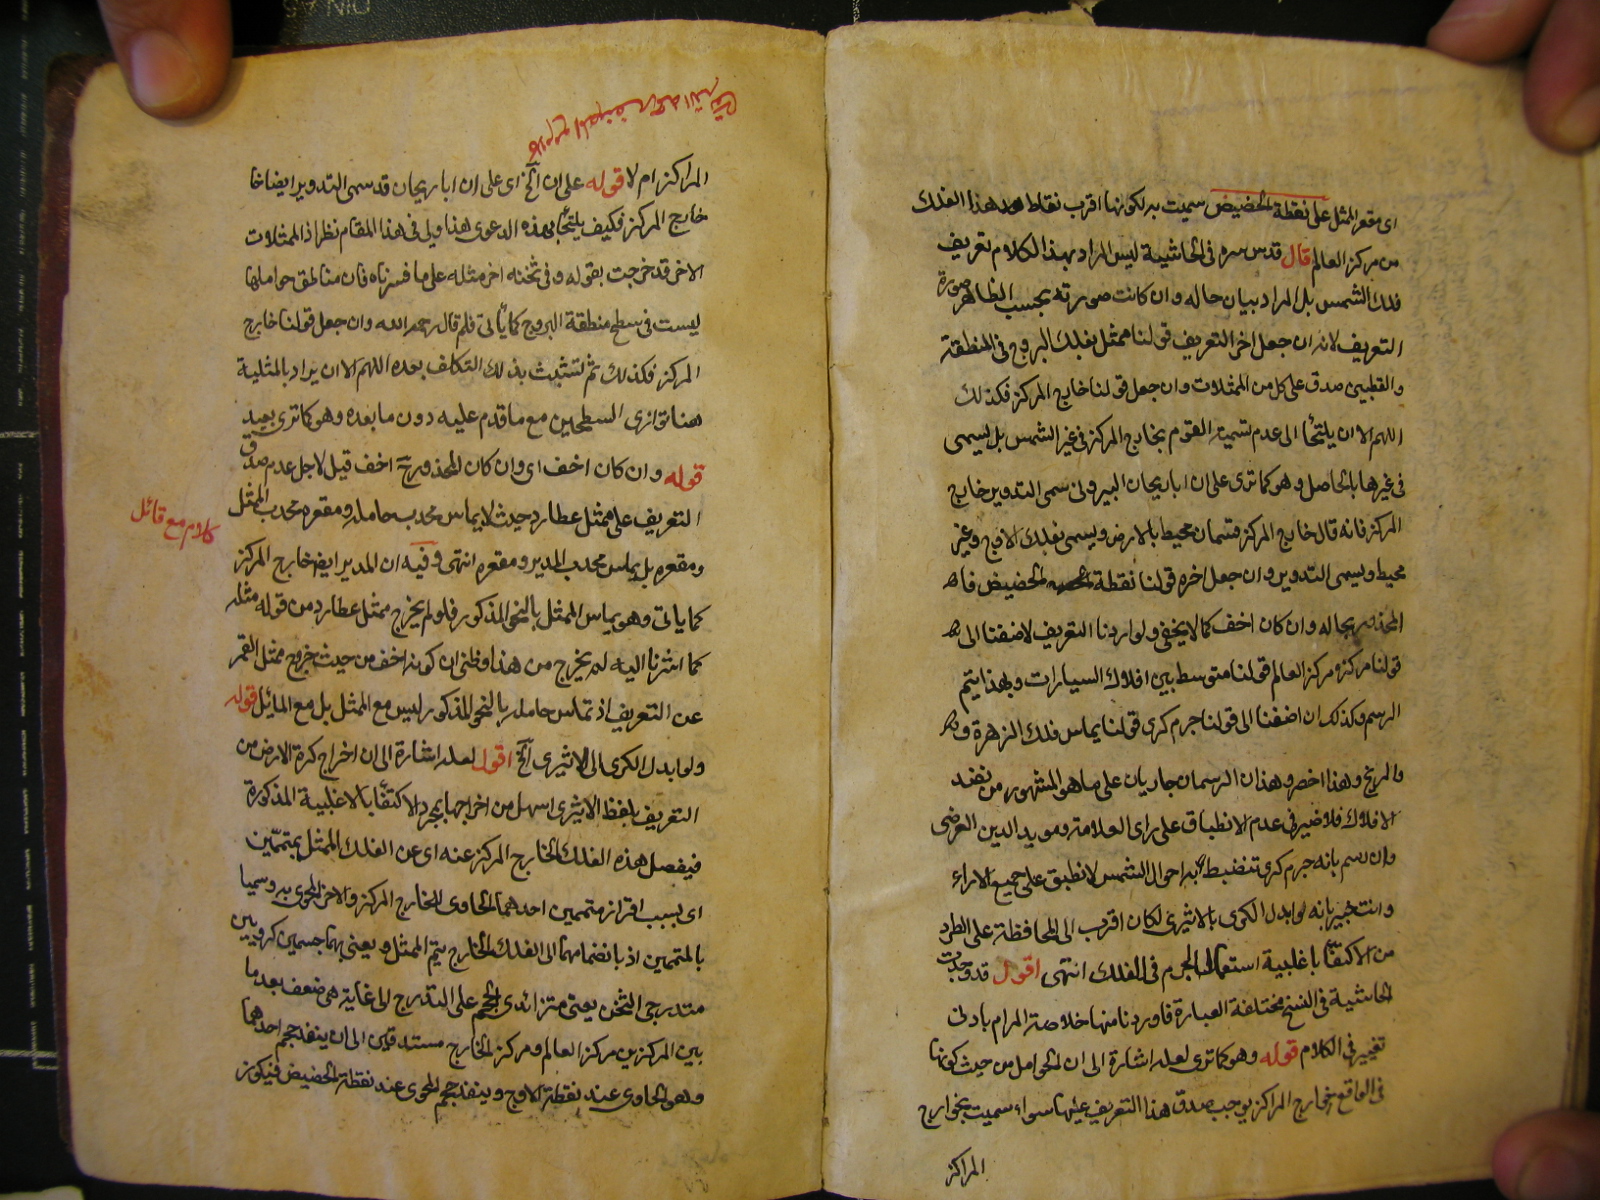 اى مقعر الممثل على نقطة الحضيض سميت به لكونها اقرب نقاط هذا الفلك
من مركز العالم قال قدس سره فى الحاشية ليس المراد بهذا الكلام تعريف
فلك الشمس بل المراد بيان حاله وان كانت صورته بحسب الظاهر صورة
التعريف لانه ان جعل اخر التعريف قولنا ممثل بفلك البروج فى المنطقة
والقطبين صدق على كل من الممثلات وان جعل قولنا خارج المركز فكذلك
اللهم الا ان يلتجأ الى عدم تسمية القوم بخارج المركز فى غير الشمس بل يسمى
فى غيرها بالحامل وهو كما ترى على ان ابا ريحان البيرونى سمى التدوير خارج
المركز فانه قال خارج المركز قسمان محيط بالارض ويسمى بفلك الاوج وغير
محيط ويسمى التدوير وان جعل اخره قولنا نقطة الحضيض
المحذور بحاله وان كان اخف كما لا يخفى ولو اردنا التعريف لاضفنا الى
قولنا مركزه مركز العالم قولنا متوسط بين افلاك السيارات وبهذا يتم
الرسم وكذلك ان اضفنا الى قولنا جرم كرى قولنا يماس فلك الزهرة
والمريخ وهذا اخصر وهذان الرسمان جاريان على ما هو المشهور من نضد
الافلاك فلا ضير فى عدم الانطباق على راى العلامة ومويد الدين العرضى
وان رسم بانه جرم كرى تنضبط به احوال الشمس لانطبق على جميع الاراء
وانت خبير بانه لو ابدل الكرى بالاثيرى لكان اقرب الى المحافظة على الطرد
من الاكتفاء باغلبية استعمال الجرم فى الفلك انتهى اقول قد وجدت
الحاشية فى النسخ مختلفة العبارة فاوردنا منها خلاصة المرام بادنى
تغيير فى الكلام قوله وهو كما ترى لعله اشارة الى ان الحوامل من حيث كونها
فى الواقع خارج المراكز يوجب صدق هذا التعريف عليها سواء سميت بخوارج
المراكز
المراكز ام لا قوله على ان الخ اى على ان ابا ريحان قد سمى التدوير ايضا خا
خارج المركز فكيف يلتجأ بهذه الدعوى هذا وقيل فى هذا المقام نظر اذ الممثلات
الاخر قد خرجت بقوله وفى ثخنه اخر مثله على ما فسرناه فان مناطق حواملها
ليست فى سطح منطقة البروج كما ياتى فلم قال رحمه الله وان جعل قولنا خارج
المركز فكذلك ثم تشبث بذلك التكلف بعده اللهم الا ان يراد بالمثلية
هنا توازى السطحين مع ما قدم عليه دون ما بعده وهو كما ترى بعيد
قوله وان كان اخف اى وان كان المحذور ح اخف قيل لاجل عدم صدق
التعريف على ممثل عطارد حيث لا يماس محدب حامله ومقعره محدب الممثل
ومقعره بل يماس محدب المدير ومقعره انتهى وفيه ان المدير ايضا خارج المركز
كما ياتى وهو يماس الممثل بالنحو المذكور فلو لم يخرج ممثل عطارد من قوله مثله
كما اشرنا اليه لم يخرج من هذا وظنى ان كونه اخف من حيث خروج ممثل القمر
عن التعريف اذ تماس حامله بالنحو المذكور ليس مع الممثل بل مع المائل قوله
ولو ابدل الكرى الى الاثيرى الخ اقول لعله اشارة الى ان اخراج كرة الارض من
التعريف بلفظ الاثيرى اسهل من اخراجها بمجرد الاكتفاء بالاغلبية المذكورة
فيفصل هذه الفلك الخارج المركز عنه اى عن الفلك الممثل بمتممين
اى بسبب افرازه متممين احدهما الحاوى الخارج المركز والاخر المحوى به وسميا
بالمتممين اذ بانضمامهما الى الفلك الخارج يتم الممثل ويعنى بهما جسمين كرويين
متدرجى الثخن يعنى متزائدى الحجم على التدرج الى غاية هى ضعف بعد ما
بين المركزين مركز العالم ومركز الخارج مستدقين الى ان ينفد حجم احدهما
وهو الحاوى عند نقطة الاوج وينفد حجم المحوى عند نقطة الحضيض فيكون
كلام مع قائل